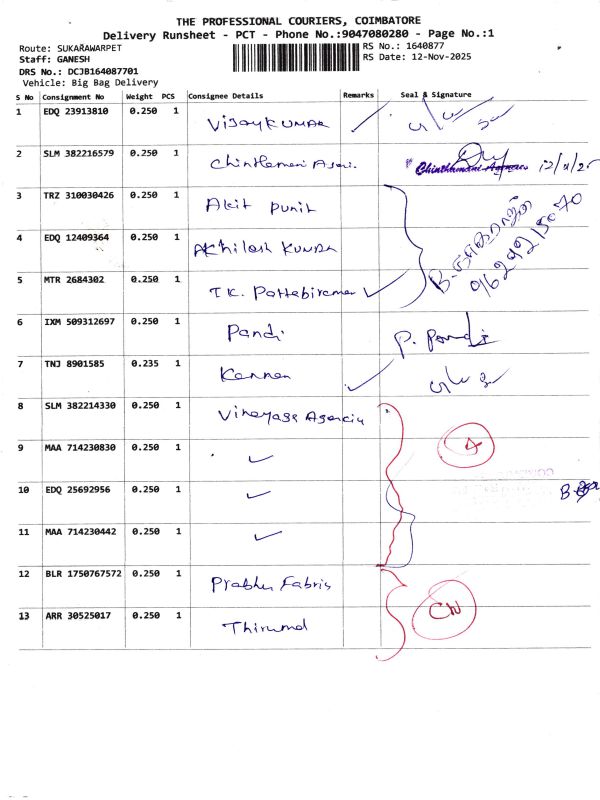 THE PROFESSIONAL COURIERS, COIMBATORE
Delivery Runsheet - PCT - Phone No.:9047080280 - Page No.:1
Route: SUKARAWARPET
RS No.: 1640877
Staff: GANESH
RS Date: 12-Nov-2025
DRS No.: DCJB164087701
Vehicle: Big Bag Delivery
S No Consignment No Weight PCS Consignee Details Remarks Seal & Signature
1 EDQ 23913810 0.250 1 VIJAYKUMAR
2 SLM 382216579 0.250 1 Chinthamani
3 TRZ 310030426 0.250 1 Akit Punit
4 EDQ 12409364 0.250 1 AKhilash KUNDA
9629215070
5 MTR 2684302 0.250 1 T.K. Pattabiraman ✓
6 IXM 509312697 0.250 1 Pandi P. Pandi
7 TNJ 8901585 0.235 1 Kannan ✓
8 SLM 382214330 0.250 1 Vinayaga Agencies
9 MAA 714230830 0.250 1 ✓ 4
10 EDQ 25692956 0.250 1 ✓
11 MAA 714230442 0.250 1 ✓
12 BLR 1750767572 0.250 1 Prabhu Fabris
13 ARR 30525017 0.250 1 Thirumal CN